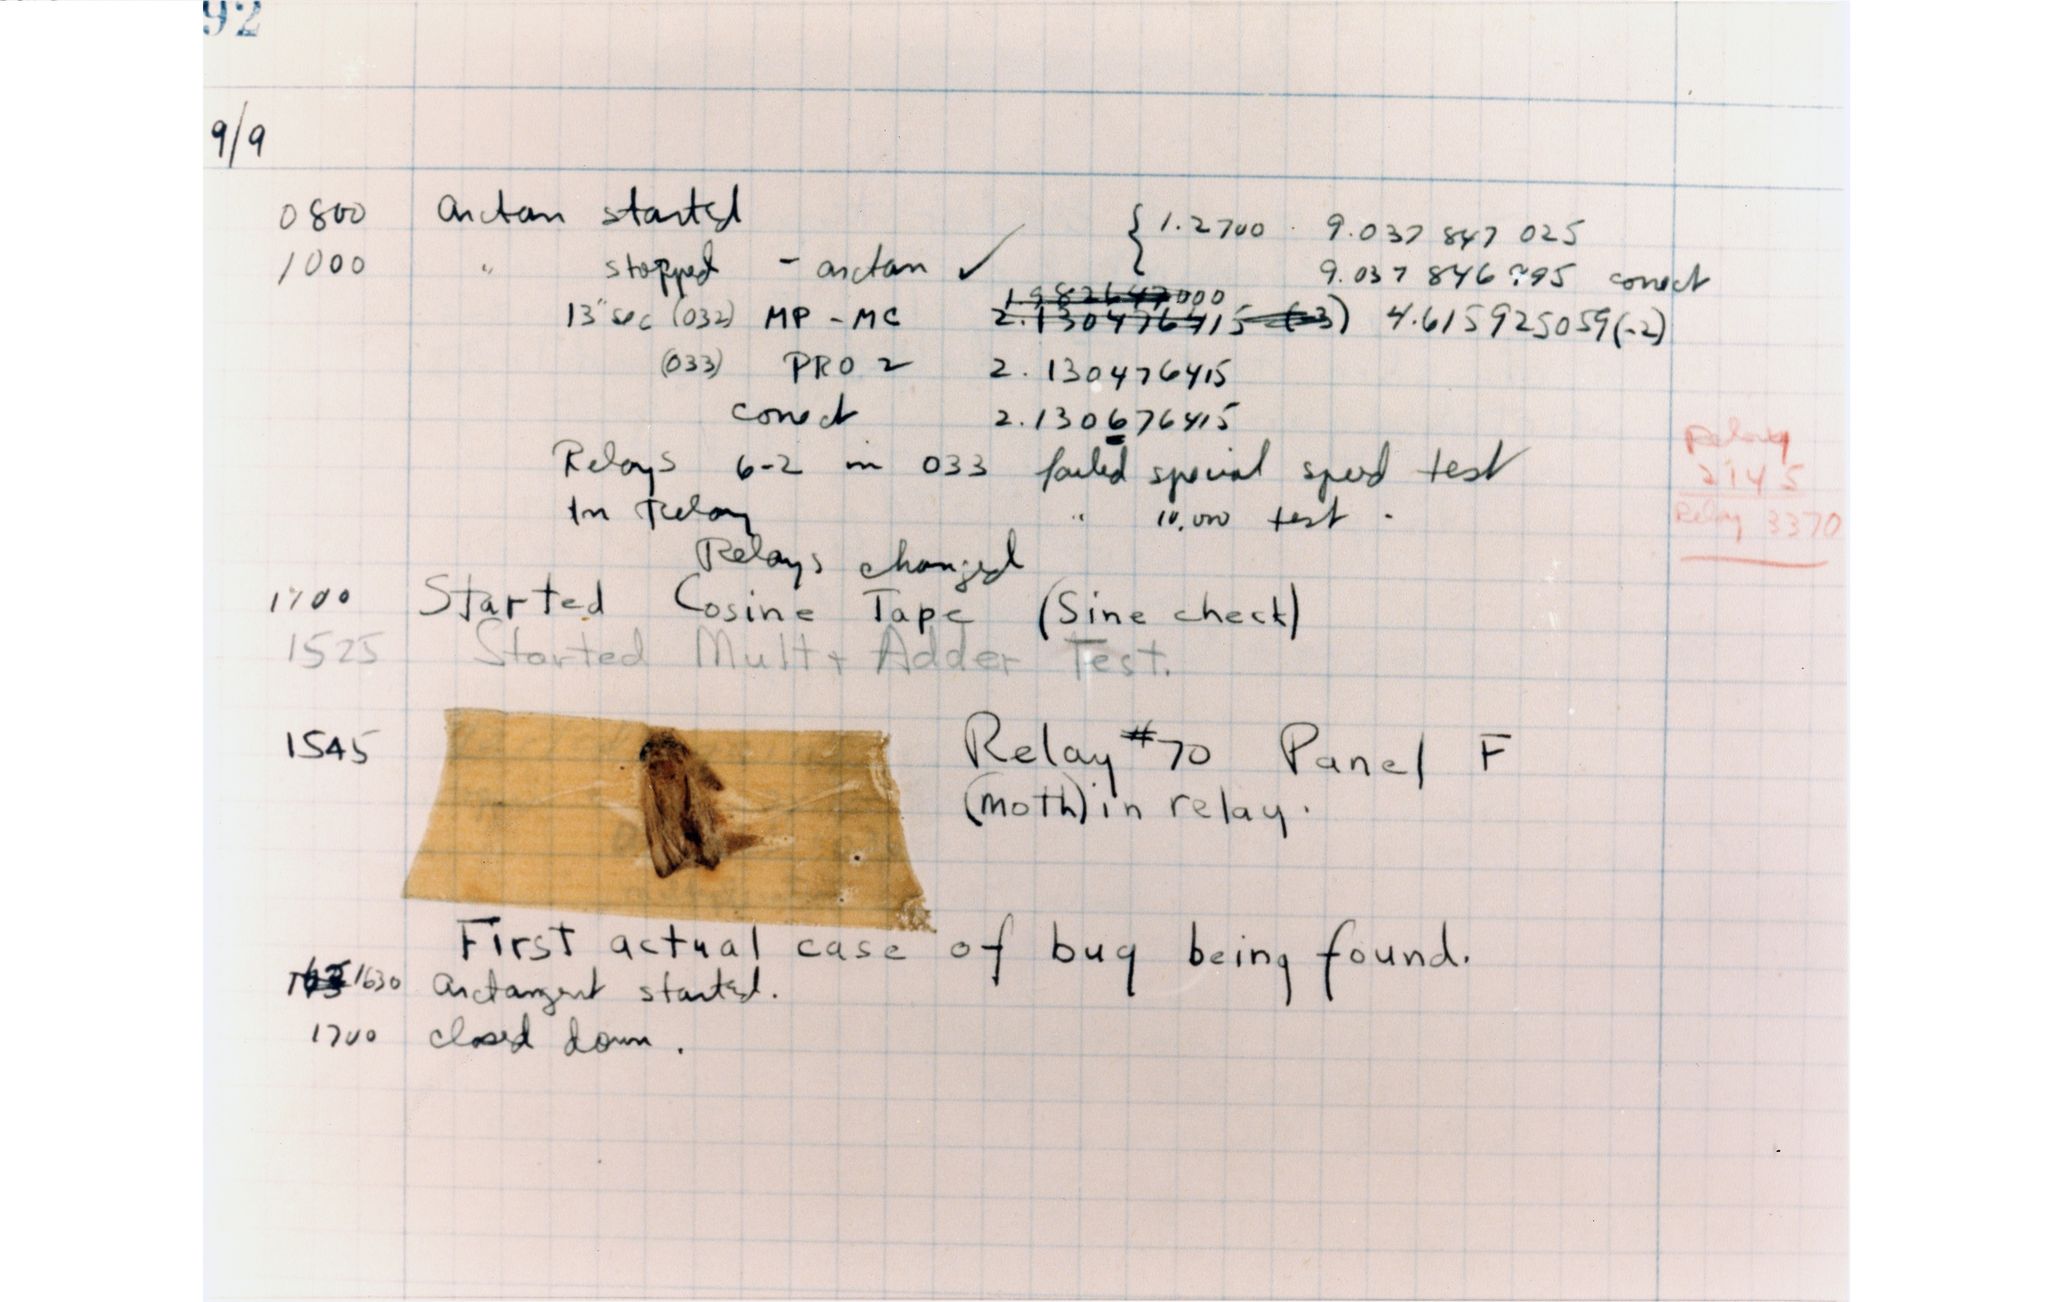 92
9/9
0800 arctan started { 1.2700 9.037 847 025
1000 " stopped - arctan ✓ 9.037 846 795 correct
13" sec (032) MP - MC 1.982647000
2.130476415 (-3) 4.615925059(-2)
(033) PRO 2 2.130476415
correct 2.130676415
Relays 6-2 in 033 failed special speed test
In Relay " 10,000 test.
Relays changed
Relay
2145
Relay 3370
1700 Started Cosine Tape (Sine check)
1525 Started Mult + Adder Test.
1545 Relay #70 Panel F
(moth) in relay.
First actual case of bug being found.
1630 arctangent started.
1700 closed down.